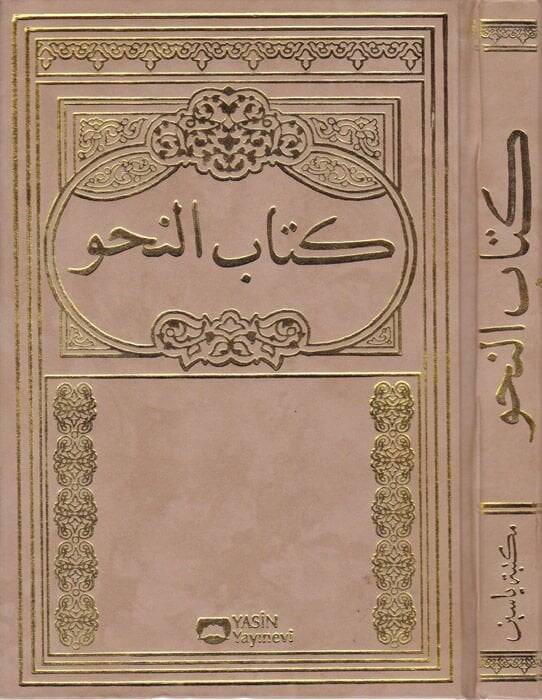 كتاب النحو
YASİN
Yayınevi
كتاب النحو
مكتبة ياسين